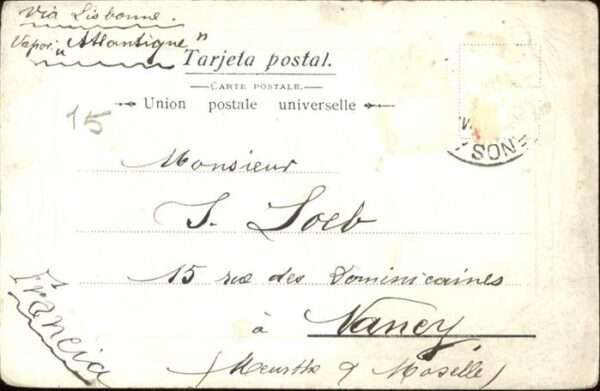 Via Lisbonne.
Vapor "Atlantique"
Tarjeta postal.
CARTE POSTALE.
Union postale universelle
15
Monsieur
S. Loeb
15 rue des Dominicaines
à Nancy,
(Meurthe & Moselle)
Francia